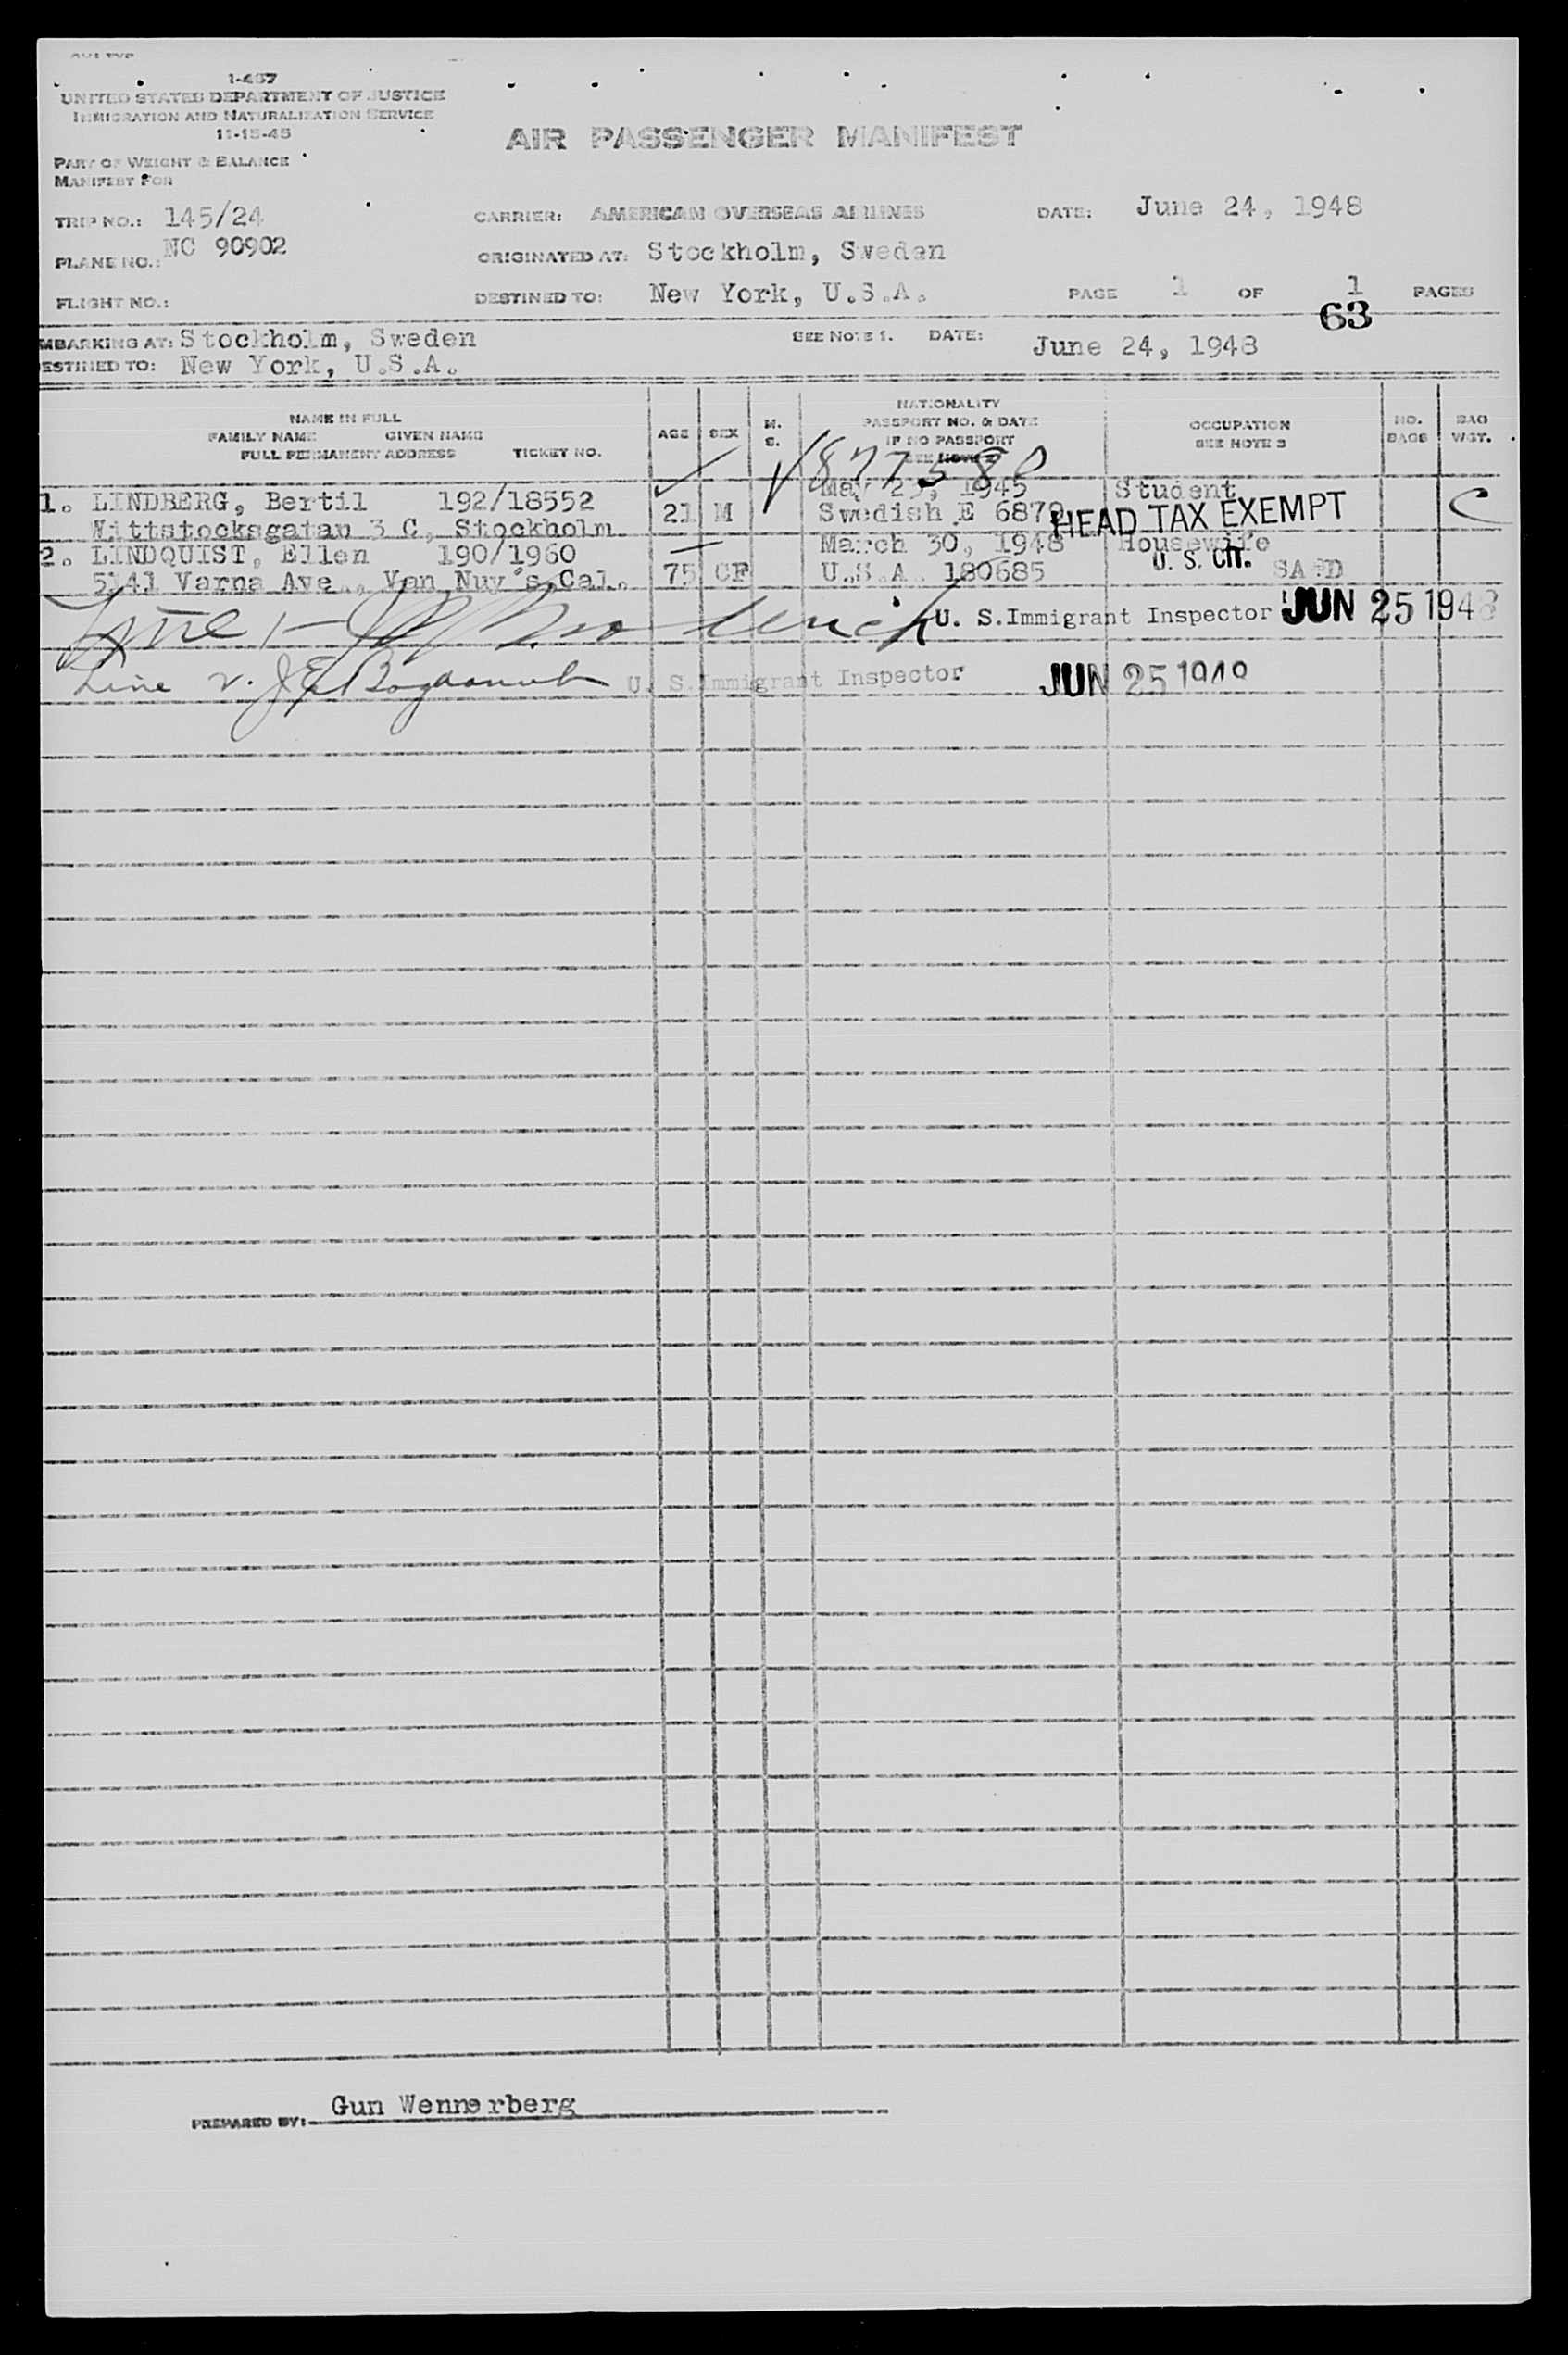 1-467
UNITED STATES DEPARTMENT OF JUSTICE
IMMIGRATION AND NATURALIZATION SERVICE
11-15-45
AIR PASSENGER MANIFEST
PART OF WEIGHT & BALANCE
MANIFEST FOR
TRIP NO.: 145/24 CARRIER: AMERICAN OVERSEAS AIRLINES DATE: June 24, 1948
PLANE NO.: NC 90902 ORIGINATED AT: Stockholm, Sweden
FLIGHT NO.: DESTINED TO: New York, U.S.A. PAGE 1 OF 1 PAGES
63
MBARKING AT: Stockholm, Sweden SEE NOTE 1. DATE: June 24, 1948
ESTINED TO: New York, U.S.A.
NAME IN FULL
FAMILY NAME GIVEN NAME
FULL PERMANENT ADDRESS TICKET NO.
AGE SEX M. S.
NATIONALITY
PASSPORT NO. & DATE
IF NO PASSPORT
SEE NOTE
OCCUPATION
SEE NOTE 3
NO. BAGS
BAG WGT.
877580
May 1945 Student
1. LINDBERG, Bertil 192/18552 21 M Swedish E HEAD TAX EXEMPT C
Wittstocksgatan 3 C, Stockholm.
March 30, 1948 Housewife
2. LINDQUIST, Ellen 190/1960 U. S. CIT.
Varna Ave., Van Nuy's, Cal. 75 F U.S.A. 180685
Line 1 U. S. Immigrant Inspector JUN 25 1948
Line 2. U. S. Immigrant Inspector JUN 25 1948
PREPARED BY: Gun Wennerberg